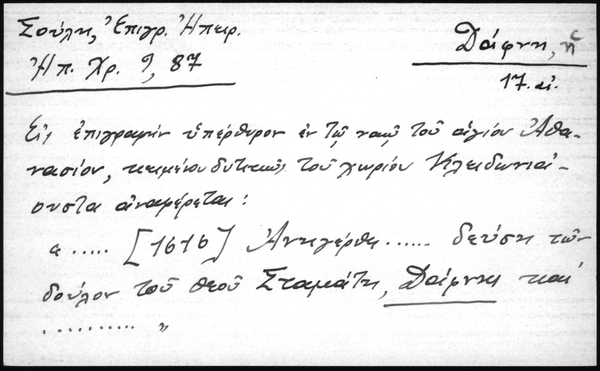 Σούλη, Ἐπιγρ. Ἠπειρ.
Ἠπ. Χρ. 9, 87
Δάφνη, ἡ
17. αἰ.
Εἰς ἐπιγραφὴν ὑπέρθυρον ἐν τῷ ναῷ τοῦ ἁγίου Ἀθα-
νασίου, κειμένου δυτικῶς τοῦ χωρίου Κλειδωνιά-
ουστα ἀναφέρεται:
« ..... [1616] Ἀνηγέρθη ...... δεήσῃ τῶν
δούλον τοῦ θεοῦ Σταμάτη, Δάφνης καί
.......... »